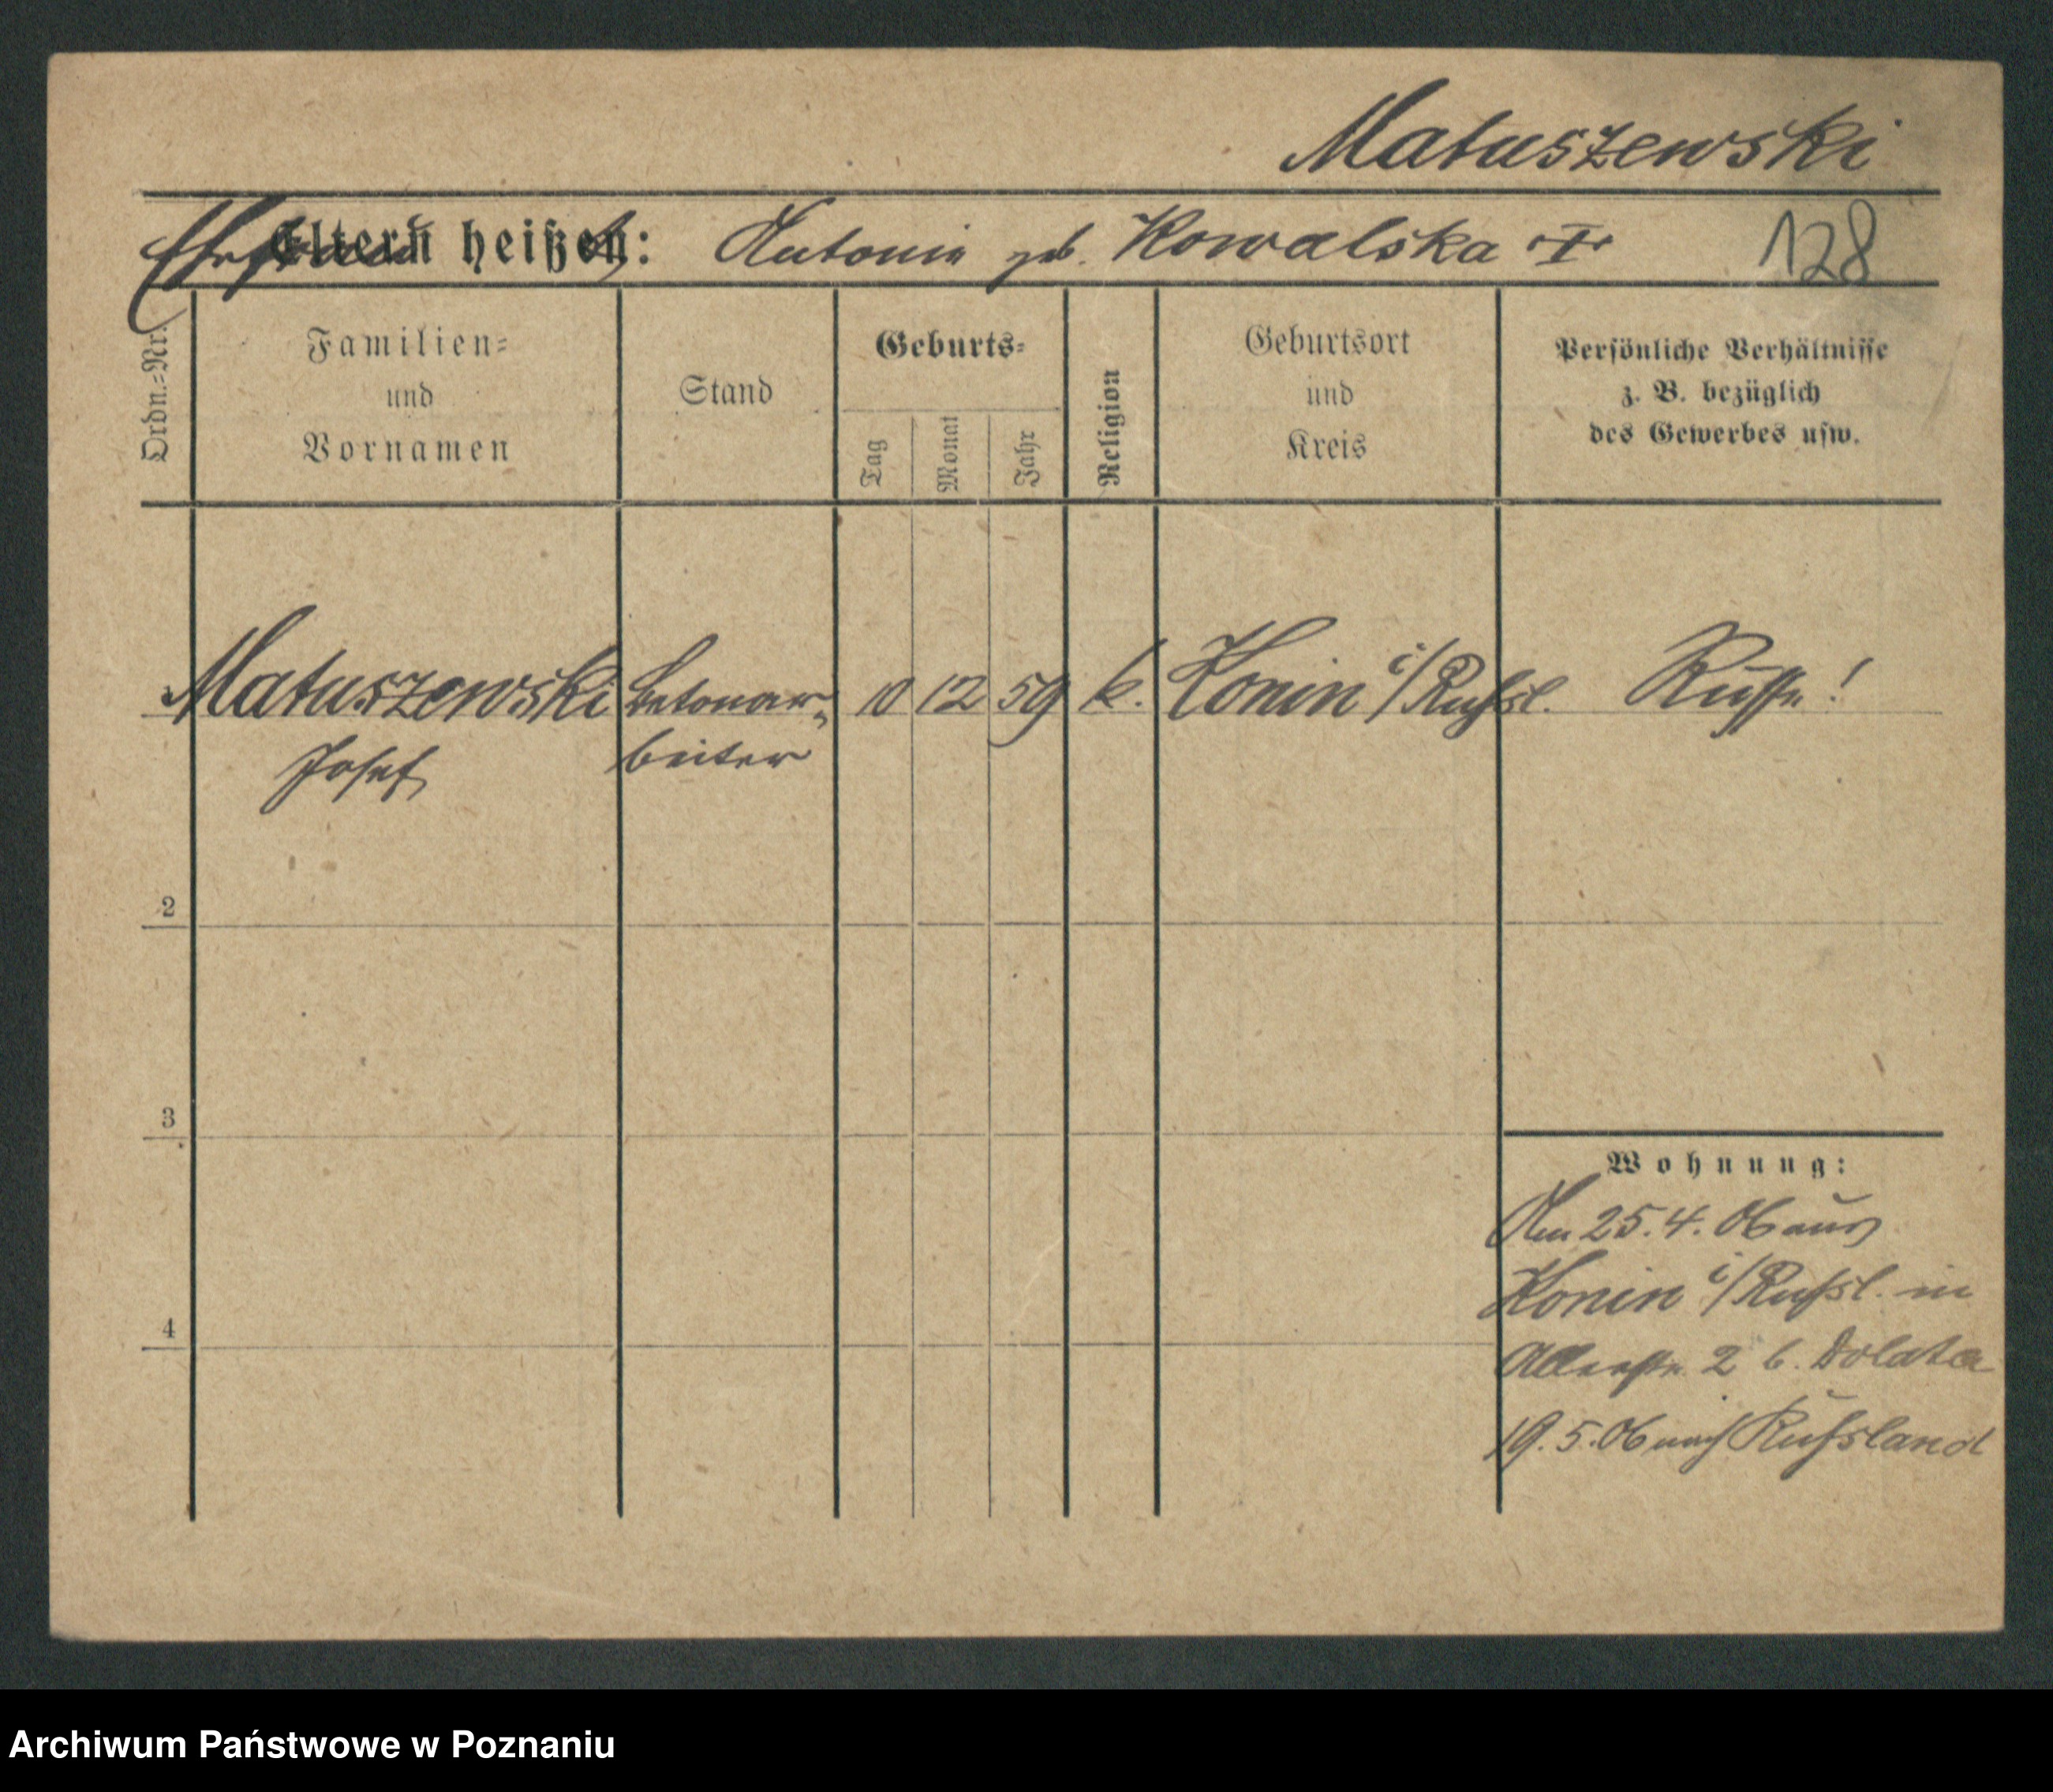 Matuszewski
Ehefrau
Eltern heißen: Antonie geb. Kowalska
128
Ordn.-Nr.
Familien-
und
Vornamen
Stand
Geburts-
Tag
Monat
Jahr
Religion
Geburtsort
und
Kreis
Persönliche Verhältnisse
z. B. bezüglich
des Gewerbes usw.
Matuszewski Betonar- 10 12 59 k. Konin i/Rußl. Russe!
Josef beiter
2
3
4
Wohnung:
Am 25.4.06 aus
Konin i/Rußl. in
Allerstr. 2 b. Dolata
19.5.06 nach Rußland
Archiwum Państwowe w Poznaniu